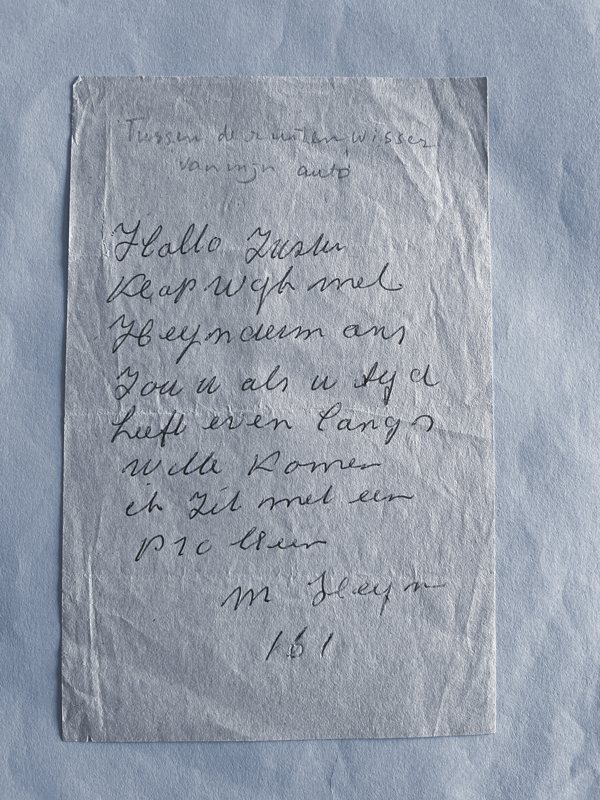 Tussen de ruitenwisser
van mijn auto
Hallo Zuster
Klapwyk met
Heyndaem ans
Zou u als u tyd
heeft even langs
wille komen
ik Zit met een
probleem
M Heyn
161